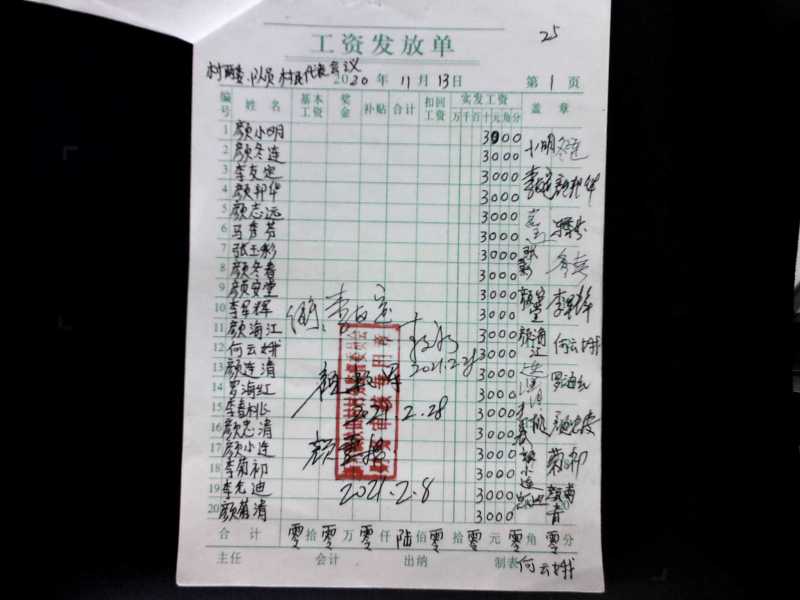 25
工资发放单
村两委、队员 村民代表会议
2020年11月13日 第1页
编号 姓名 基本工资 奖金 补贴 合计 扣回工资 实发工资 盖章
万千百十元角分
1 颜小明 3000 小明
2 颜冬连 3000 冬连
3 李友定 3000
4 颜邦华 3000 颜邦华
5 颜志远 3000
6 马秀芳 3000
7 张玉彩 3000
8 颜冬春 3000
9 颜安堂 3000
10 李军辉 3000 李军辉
11 颜海江 3000 颜海江
12 何云娥 3000 何云娥
13 颜连清 3000
14 罗海红 3000 罗海红
15 李春桃 3000
16 颜忠清 3000
17 颜小连 3000 颜小连
18 李菊初 3000 菊初
19 李先迪 3000
20 颜菊清 3000 颜菊青
2021.2.28
2021.2.28
2021.2.8
合计 零拾零万零仟陆佰零拾零元零角零分
主任 会计 出纳 制表 何云娥